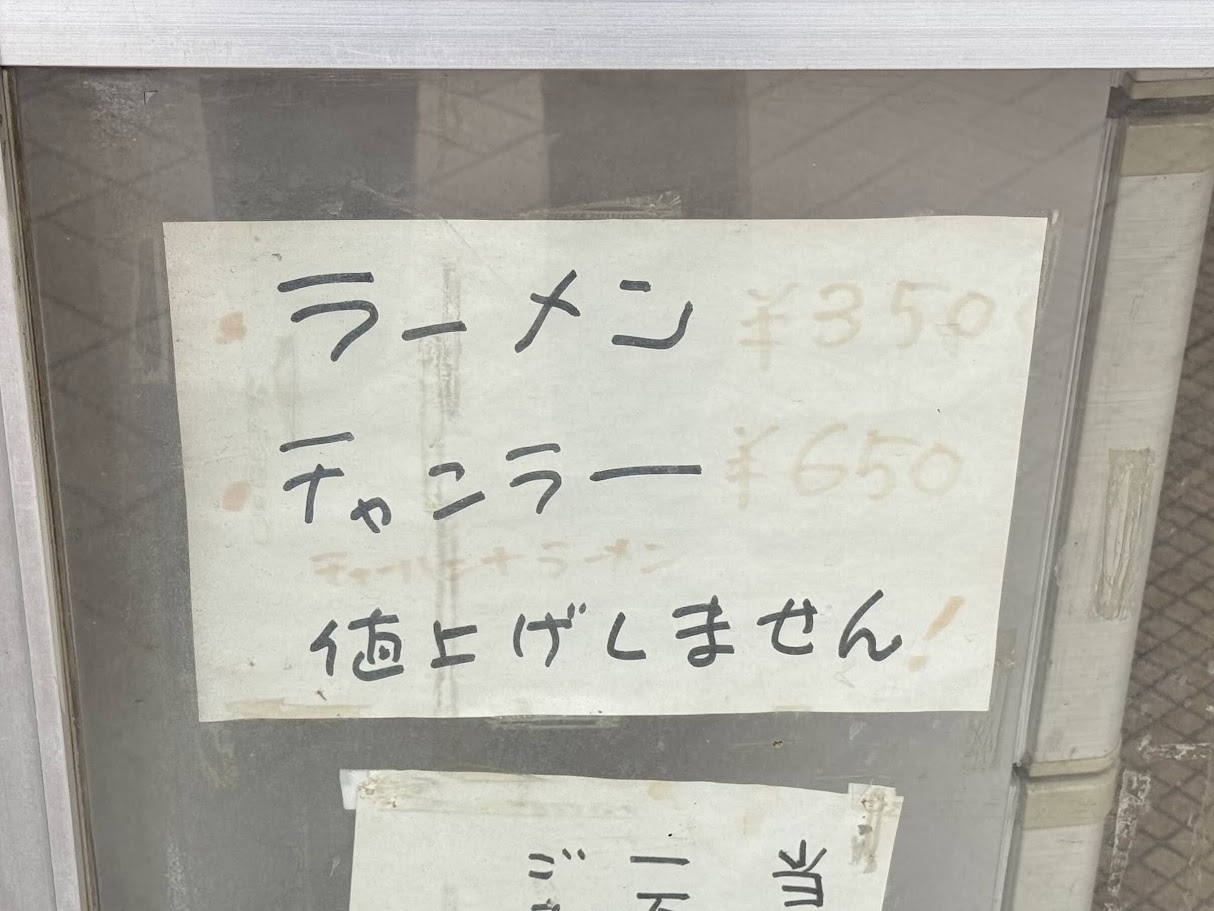 ・ラーメン ¥350
・チャンラー ¥650
ラーメン
値上げしません!
当
一
ご